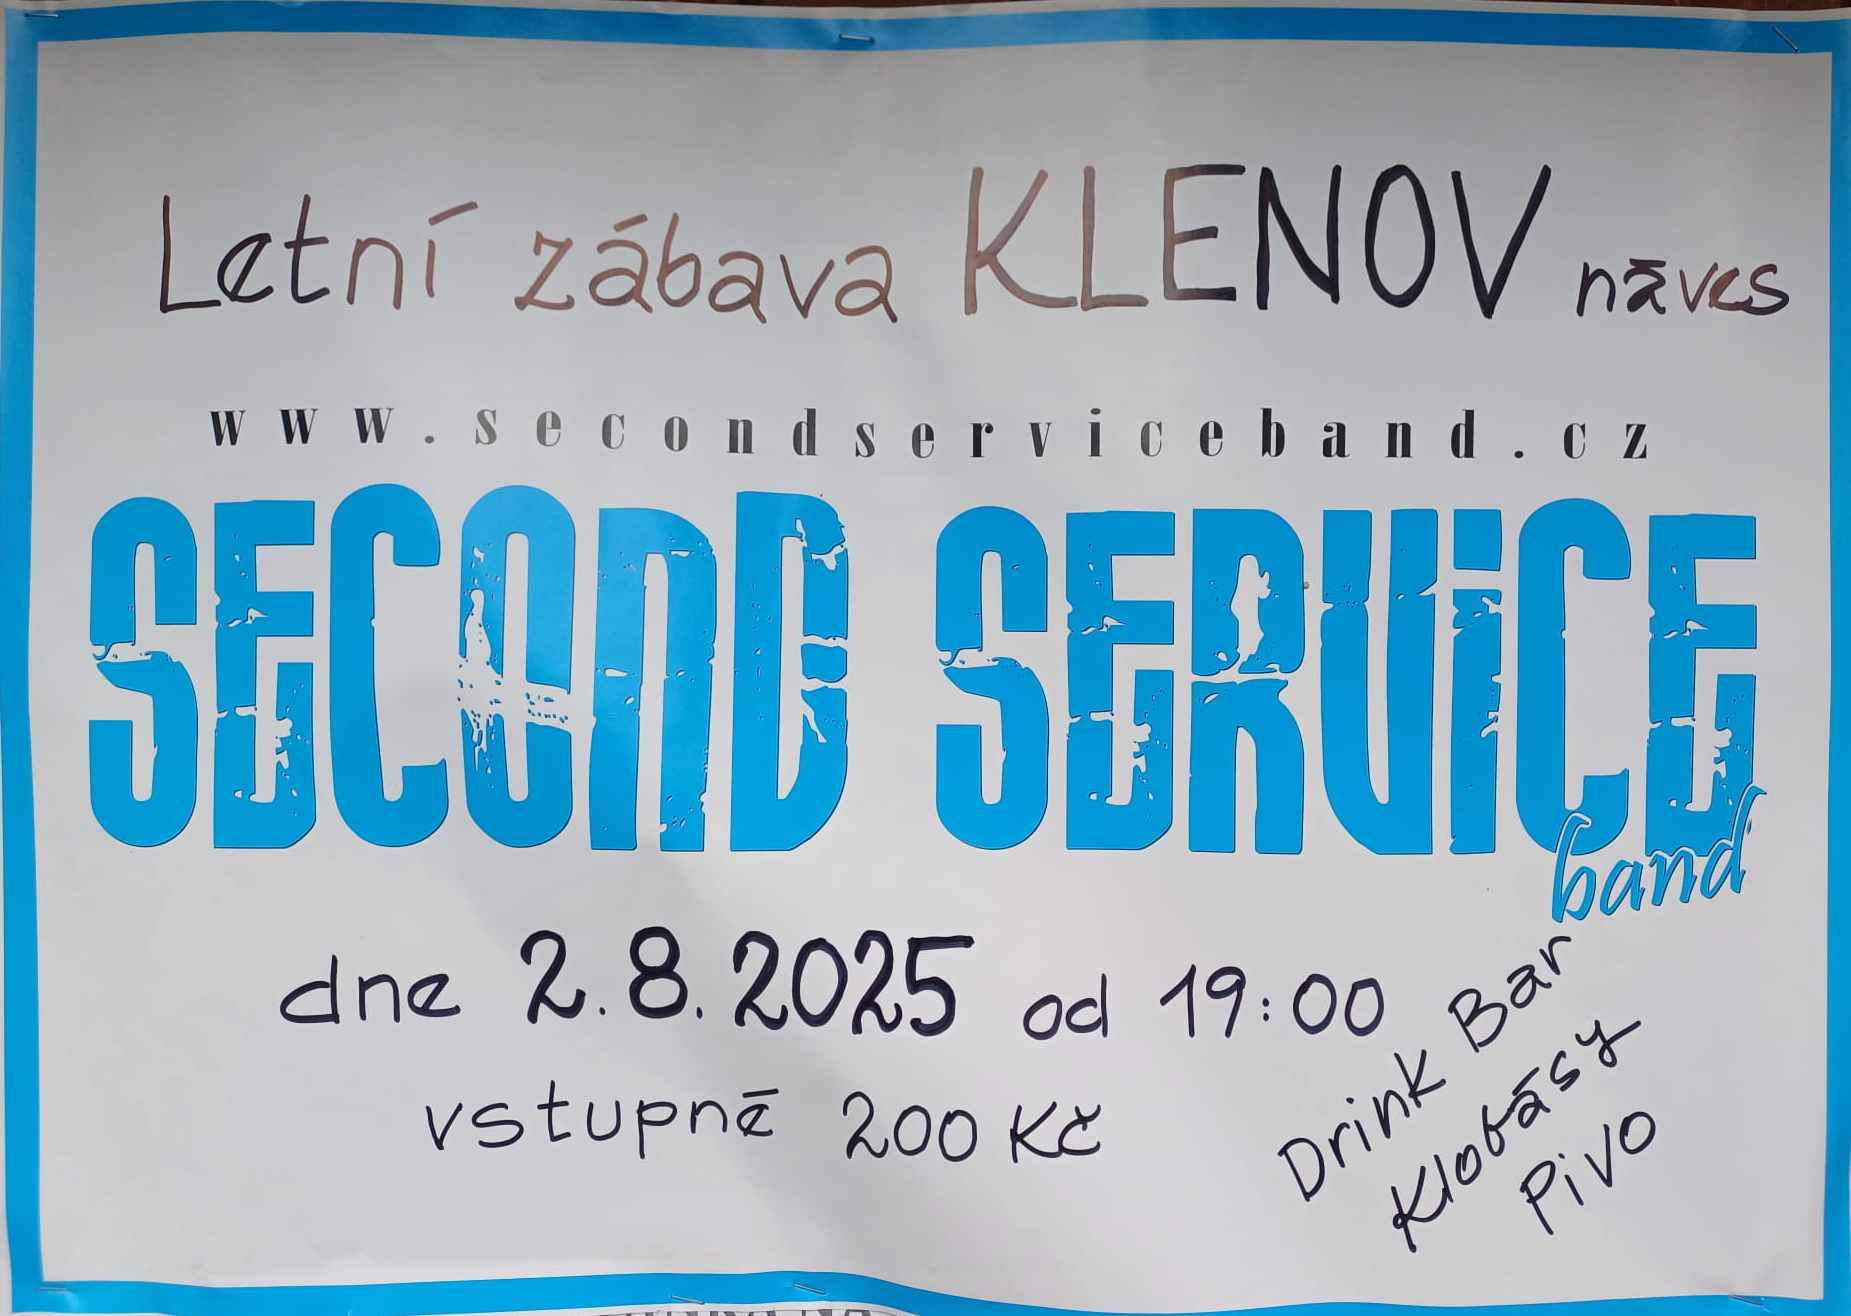 Letní zábava KLENOV náves
www.secondserviceband.cz
SECOND SERViCE
band
dne 2.8.2025 od 19:00
vstupné 200 Kč
Drink Bar
Klobásy
Pivo